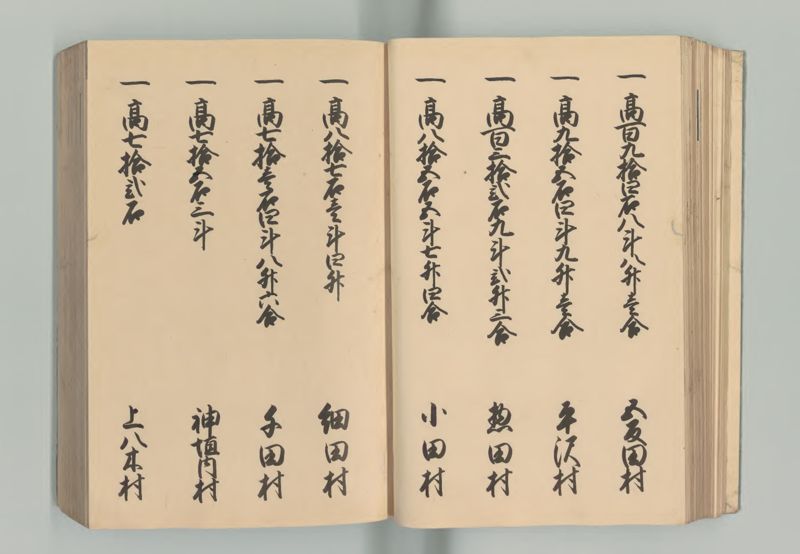 一 高百九拾四石八斗八升壱合 五反田村
一 高九拾五石四斗九升壱合 平沢村
一 高百三拾弐石九斗弐升三合 惣田村
一 高八拾五石五斗七升四合 小田村
一 高八拾七石壱斗四升 細田村
一 高七拾壱石四斗八升六合 千田村
一 高七拾五石三斗 神垣内村
一 高七拾弐石 上八木村